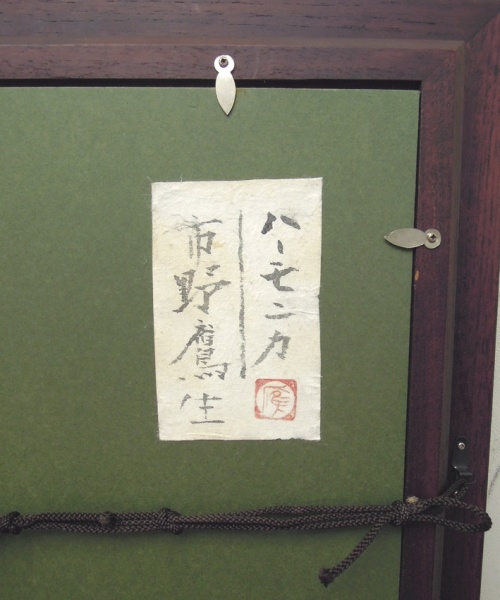 ハーモニカ
市野鷹生